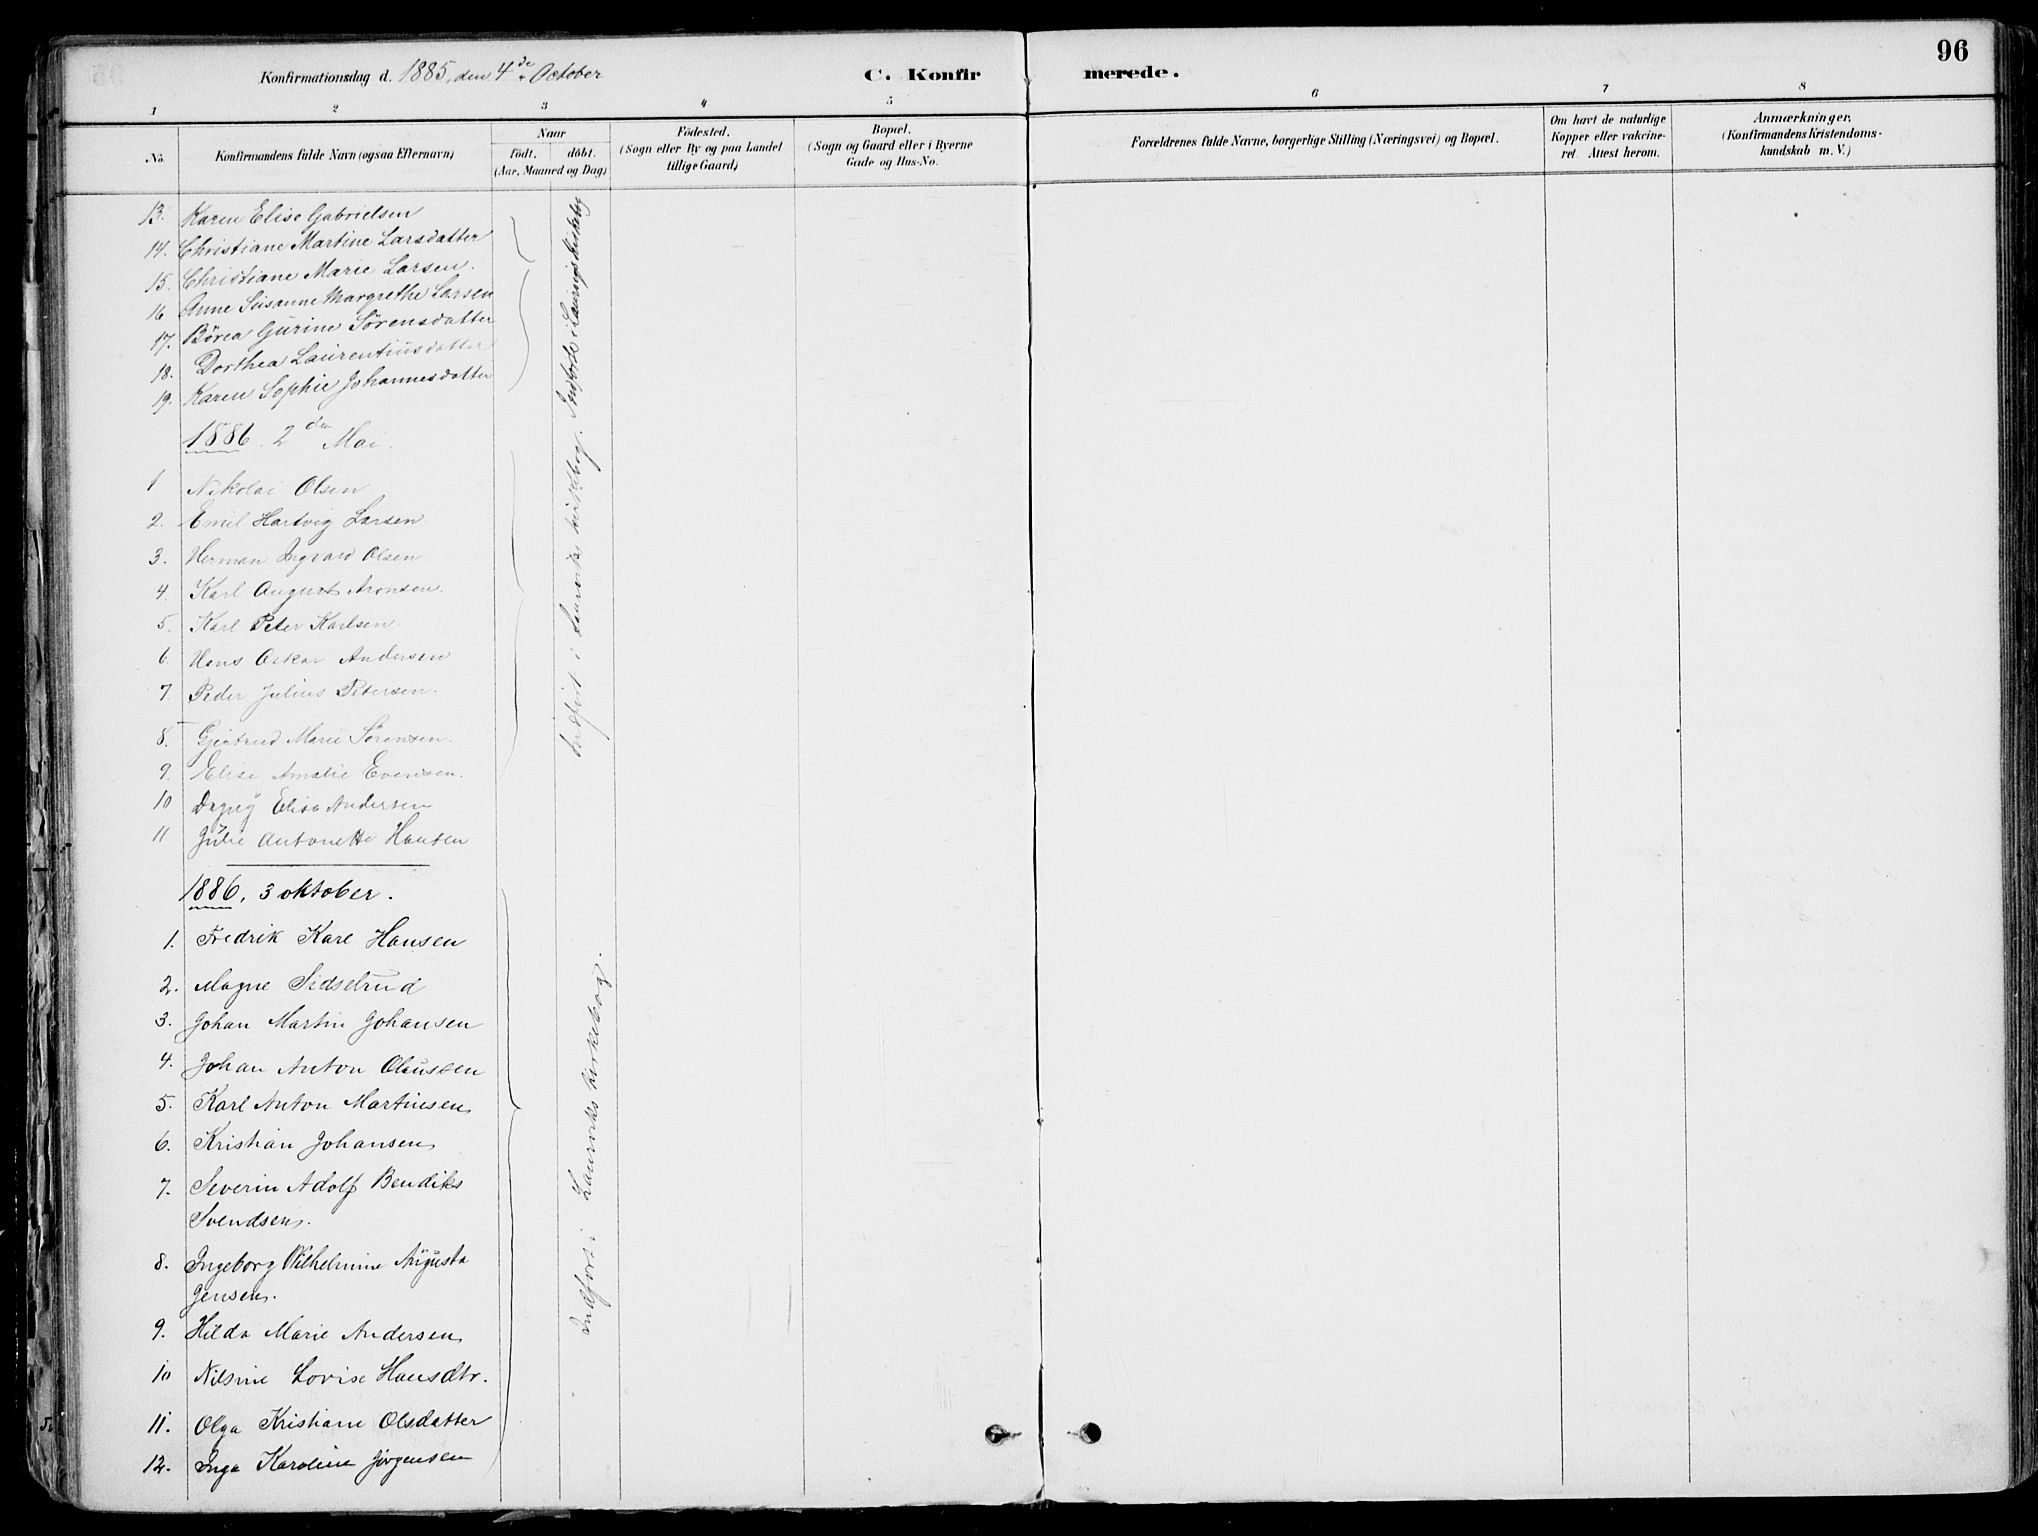 96
Konfirmationsdag d. 1885, den 4de October
C. Konfirmerede.
1 2 3 4 5 6 7 8
No.
Konfirmandens fulde Navn (ogsaa Efternavn)
Naar
födt. döbt.
(Aar, Maaned og Dag)
Födested.
(Sogn eller By og paa Landet
tillige Gaard)
Bopæl.
(Sogn og Gaard eller i Byerne
Gade og Hus-No.
Forældrenes fulde Navne, borgerlige Stilling (Næringsvei) og Bopæl.
Om havt de naturlige
Kopper eller vakcine-
ret. Attest herom.
Anmærkninger,
(Konfirmandens Kristendoms-
kundskab m. V.)
13. Karen Elise Gabrielsen
14. Christiane Martine Larsdatter
15. Christiane Marie Larsen.
16 Anne Susanne Margrethe Larsen
17. Börea Gurine Sörensdatter
18. Dorthea Laurentiusdatter
19. Karen Sophie Johannesdatter
Indförte i Laurvigs Kirkebog
1886. 2den Mai.
1 Nikolai Olsen
2. Emil Hartvig Larsen
3. Herman Ingvard Olsen
4. Karl August Aronsen.
5. Karl Peter Karlsen
6. Hans Oskar Andersen
7. Peder Julius Petersen.
8. Gjertrud Marie Sörensen.
9. Elise Amalie Evensen.
10 Dagny Elise Andersen
11 Julie Antonette Hansen
Indfört i Laurviks kirkebog.
1886, 3 oktober.
1. Fredrik Karl Hansen
2. Magne Sidselrud
3. Johan Martin Johansen
4. Johan Anton Olaussen
5. Karl Anton Martinsen
6. Kristian Johansen
7. Severin Adolf Bendiks
Svendsen.
8. Ingeborg Wilhelmine Augusta
Jensen.
9. Hilda Marie Andersen
10 Nilsine Lovise Hansdtr.
11. Olga Kristiane Olsdatter
12. Inga Karoline Jørgensen
Indfört i Laurviks kirkebog.